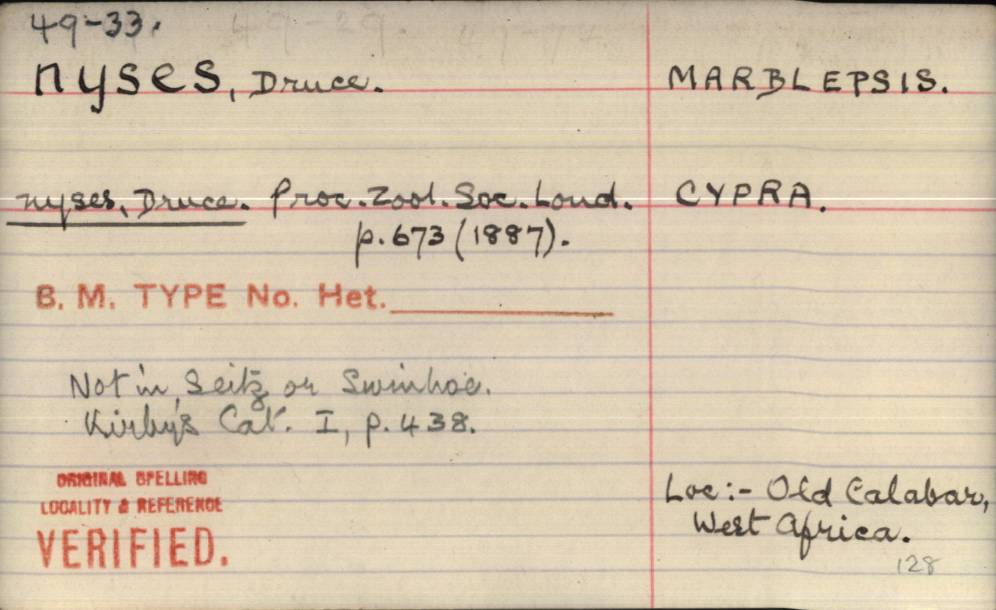 49-33.
nyses, Druce. MARBLEPSIS.
nyses, Druce. Proc. Zool. Soc. Lond. CYPRA.
p. 673 (1887).
B. M. TYPE No. Het.
Not in Seitz or Swinhoe.
Kirby's Cat. I, p. 438.
ORIGINAL SPELLING
LOCALITY & REFERENCE
VERIFIED.
Loc:- Old Calabar,
West Africa.
128